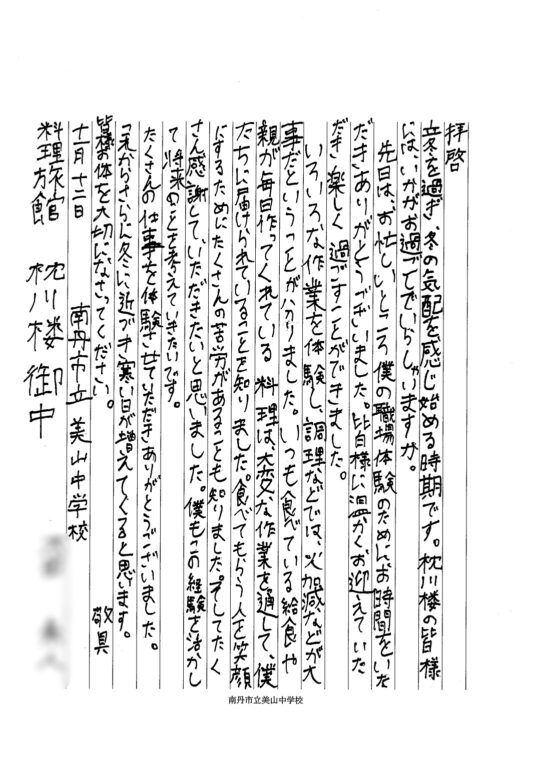 拝啓
立冬を過ぎ、冬の気配を感じ始める時期です。枕川楼の皆様
には、いかがお過ごしでいらっしゃいますか。
先日は、お忙しいところ僕の職場体験のために、お時間をいた
だきありがとうございました。皆様に温かくお迎えていた
だき楽しく過ごすことができました。
いろいろな作業を体験し、調理などでは、火加減などが大
事だということが分かりました。いつも食べている給食や
親が毎日作ってくれている料理は、大変な作業を通して、僕
たちに届けられていることを知りました。食べてもらう人を笑顔
にするためにたくさんの苦労があることも知りました。そしてたく
さん感謝して、いただきたいと思いました。僕もこの経験を活かし
て将来のことを考えていきたいです。
たくさんの仕事を体験させていただきありがとうございました。
これからさらに冬に近づき寒い日が増えてくると思います。
皆様お体を大切になさってください。
敬具
十一月十二日
南丹市立美山中学校
料理旅館 枕川楼 御中
南丹市立美山中学校